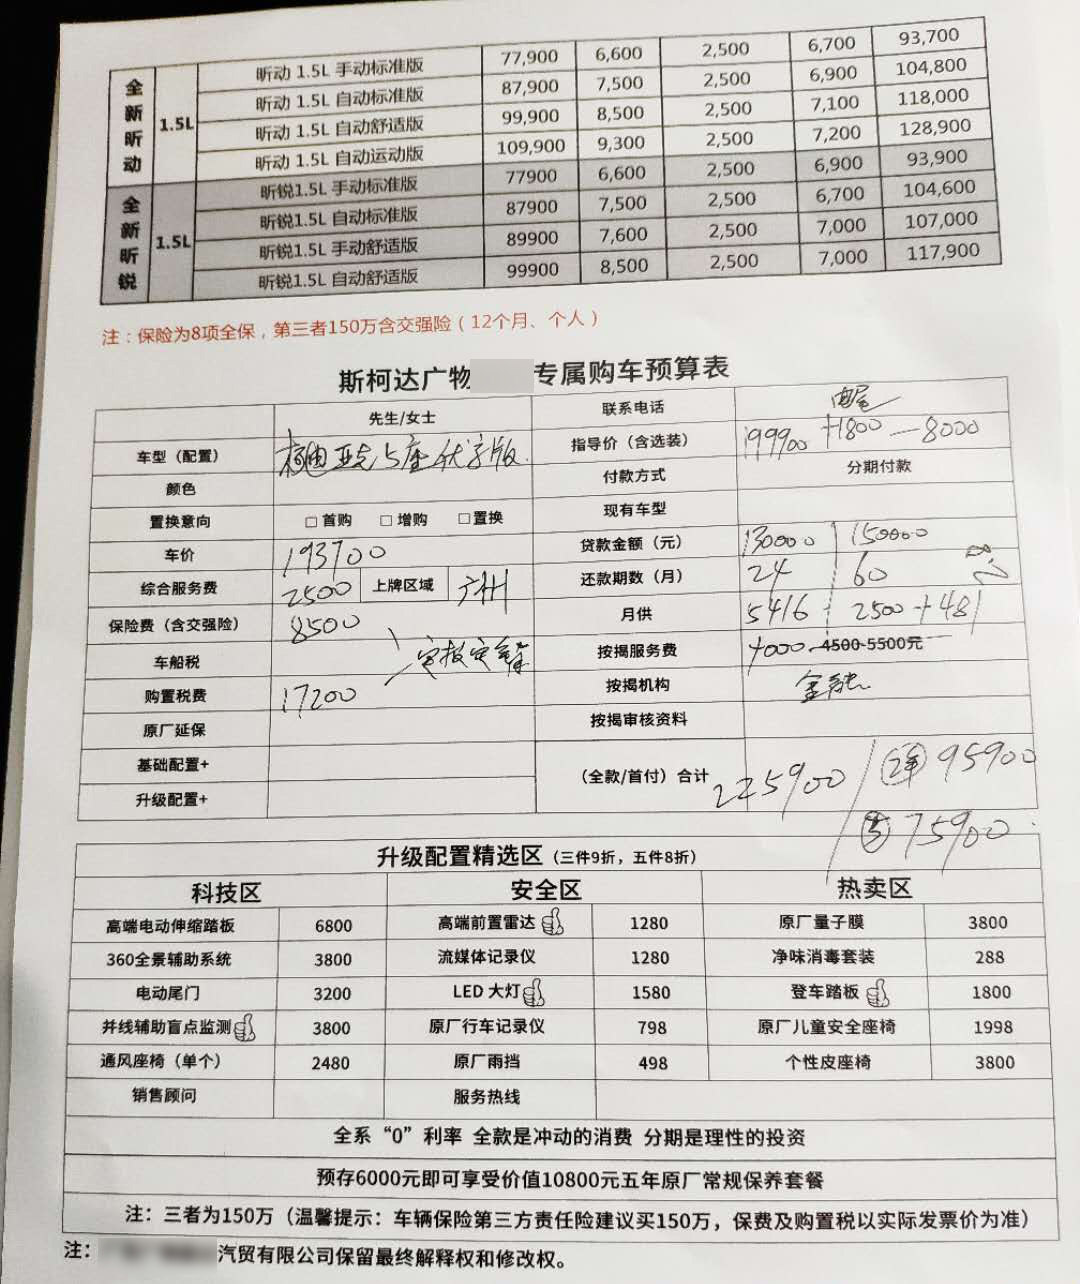 全新昕动 1.5L 昕动 1.5L 手动标准版 77,900 6,600 2,500 6,700 93,700
昕动 1.5L 自动标准版 87,900 7,500 2,500 6,900 104,800
昕动 1.5L 自动舒适版 99,900 8,500 2,500 7,100 118,000
昕动 1.5L 自动运动版 109,900 9,300 2,500 7,200 128,900
全新昕锐 1.5L 昕锐1.5L 手动标准版 77900 6,600 2,500 6,900 93,900
昕锐1.5L 自动标准版 87900 7,500 2,500 6,700 104,600
昕锐1.5L 手动舒适版 89900 7,600 2,500 7,000 107,000
昕锐1.5L 自动舒适版 99900 8,500 2,500 7,000 117,900
注：保险为8项全保，第三者150万含交强险（12个月、个人）
斯柯达广物 专属购车预算表
先生/女士 联系电话 电尾
车型（配置） 柯迪亚克5座优享版 指导价（含选装） 199900 +1800 —8000
颜色 付款方式 分期付款
置换意向 □首购 □增购 □置换 现有车型
车价 193700 贷款金额（元） 130000 150000
综合服务费 2500 上牌区域 广州 还款期数（月） 24 60
保险费（含交强险） 8500 月供 5416 2500+481
车船税 按揭服务费 4000 4500-5500元
购置税费 17200 按揭机构 金融
原厂延保 按揭审核资料
基础配置+ （全款/首付）合计 225900 2年 95900
升级配置+ 5 75900
升级配置精选区（三件9折，五件8折）
科技区 安全区 热卖区
高端电动伸缩踏板 6800 高端前置雷达 1280 原厂量子膜 3800
360全景辅助系统 3800 流媒体记录仪 1280 净味消毒套装 288
电动尾门 3200 LED 大灯 1580 登车踏板 1800
并线辅助盲点监测 3800 原厂行车记录仪 798 原厂儿童安全座椅 1998
通风座椅（单个） 2480 原厂雨挡 498 个性皮座椅 3800
销售顾问 服务热线
全系“0”利率 全款是冲动的消费 分期是理性的投资
预存6000元即可享受价值10800元五年原厂常规保养套餐
注：三者为150万（温馨提示：车辆保险第三方责任险建议买150万，保费及购置税以实际发票价为准）
注： 汽贸有限公司保留最终解释权和修改权。